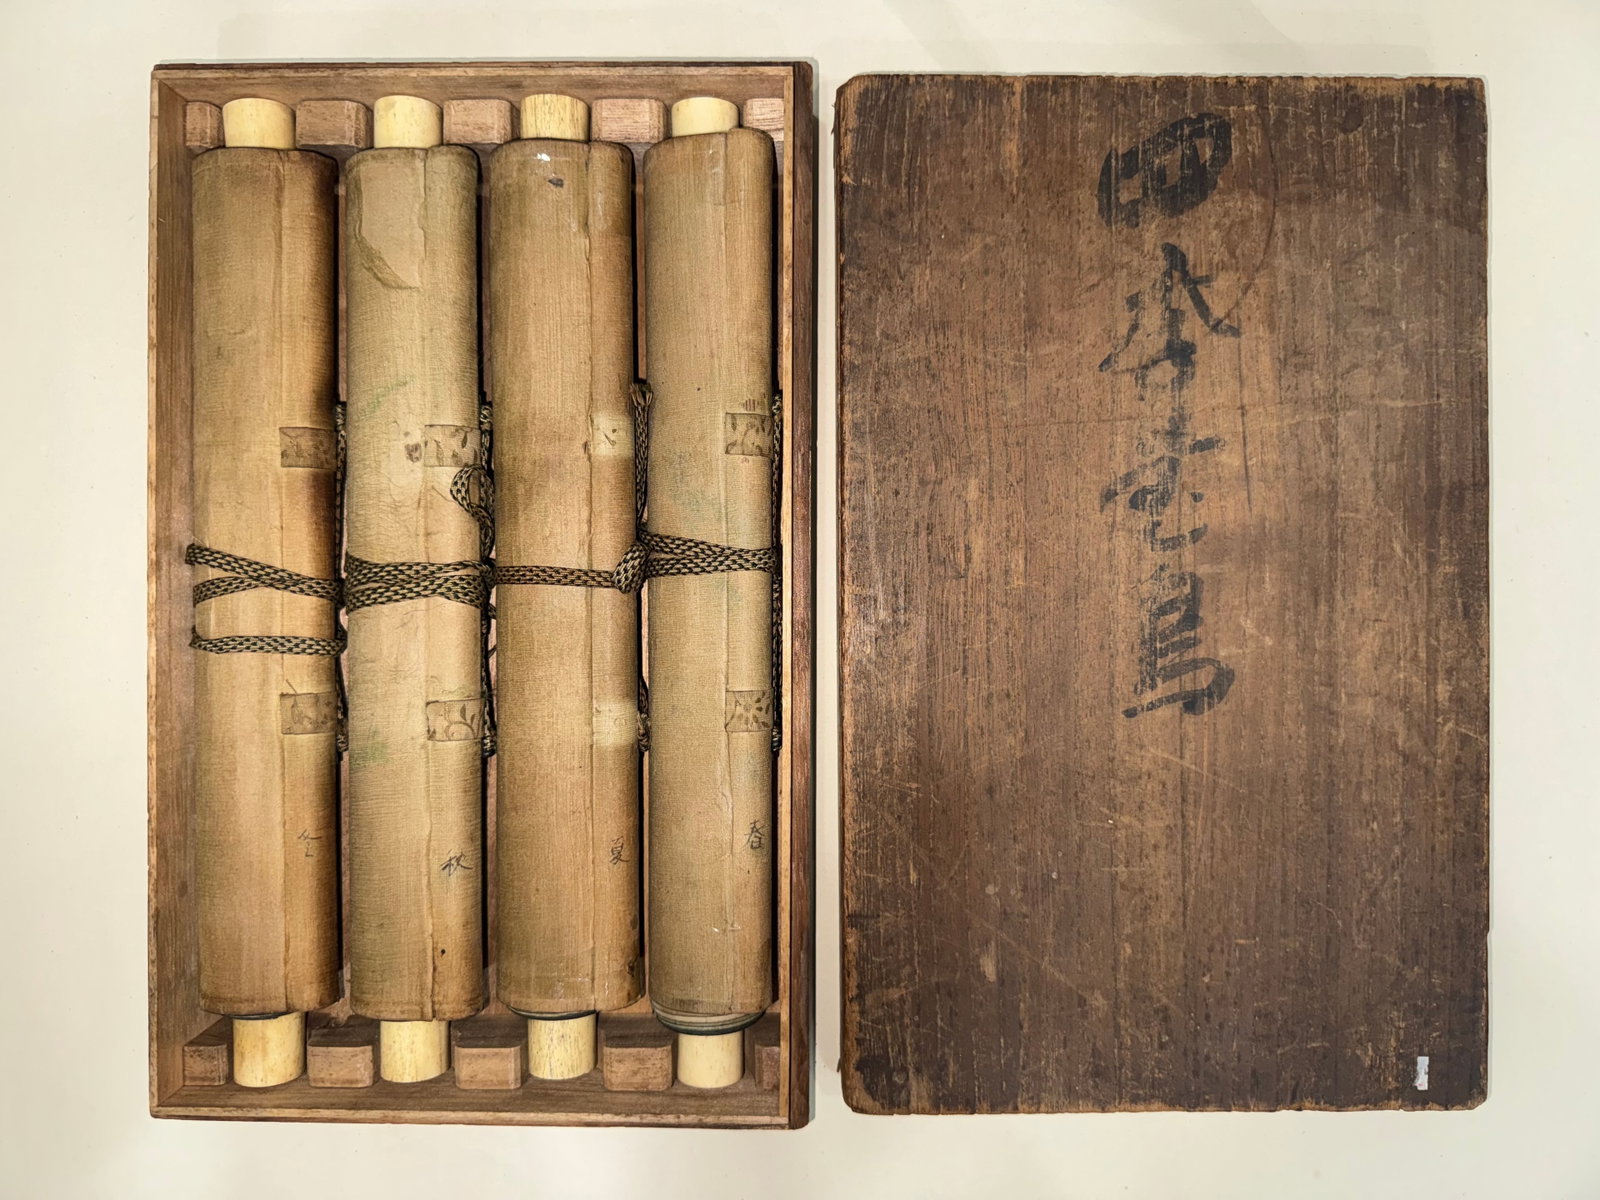 四季花鳥
春
夏
秋
冬